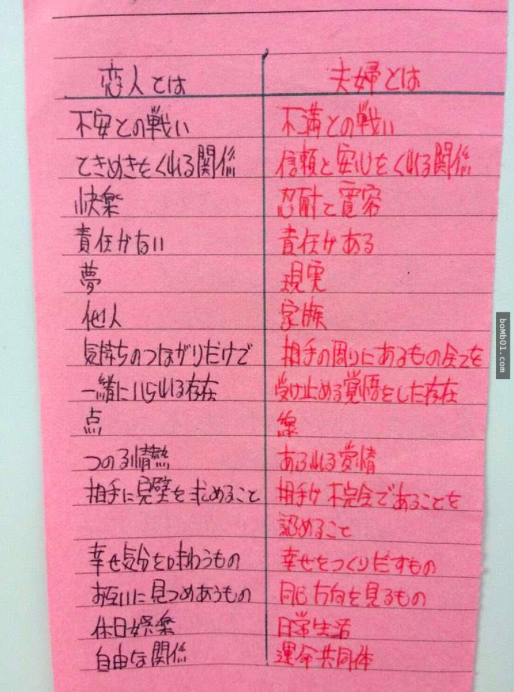 恋人とは 夫婦とは
不安との戦い 不満との戦い
ときめきをくれる関係 信頼と安心をくれる関係
快楽 忍耐と寛容
責任がない 責任がある
夢 現実
他人 家族
気持ちのつながりだけで 相手の周りにあるもの全てを
一緒にいられる存在 受け止める覚悟をした存在
点 線
つのる情熱 あふれる愛情
相手に完璧を求めること 相手が不完全であることを
認めること
幸せ気分を味わうもの 幸せをつくりだすもの
お互いに見つめあうもの 同じ方向を見るもの
休日娯楽 日常生活
自由な関係 運命共同体
boMb01.com